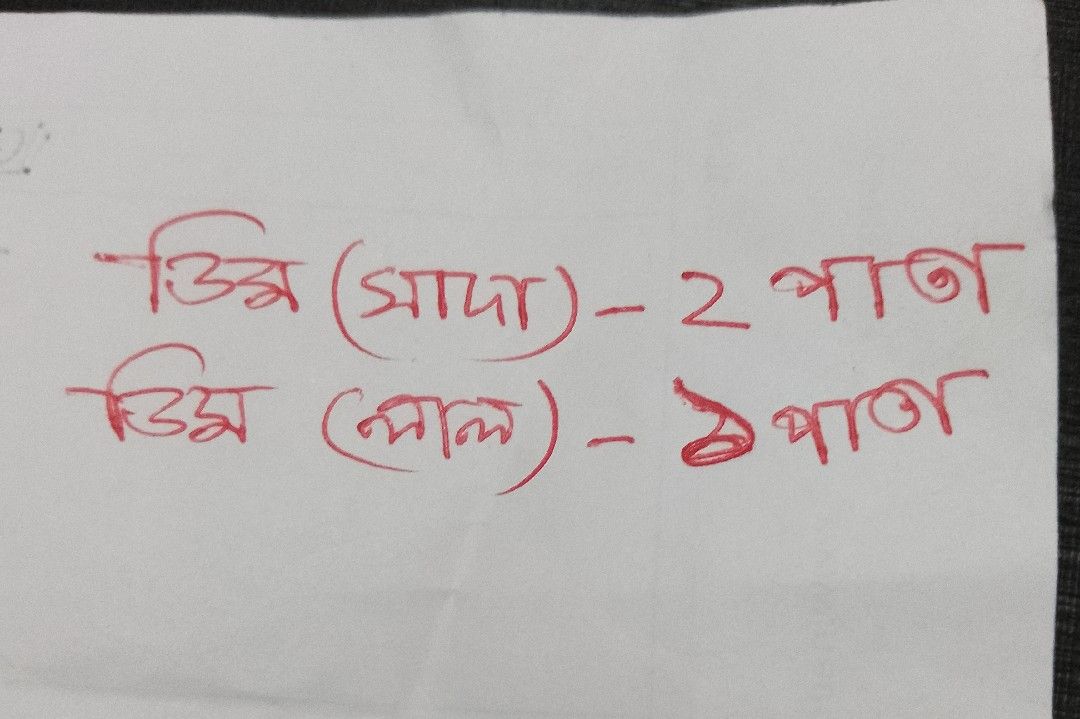 ডিম (সাদা) - 2 পাতা
ডিম (লাল) - ১ পাতা